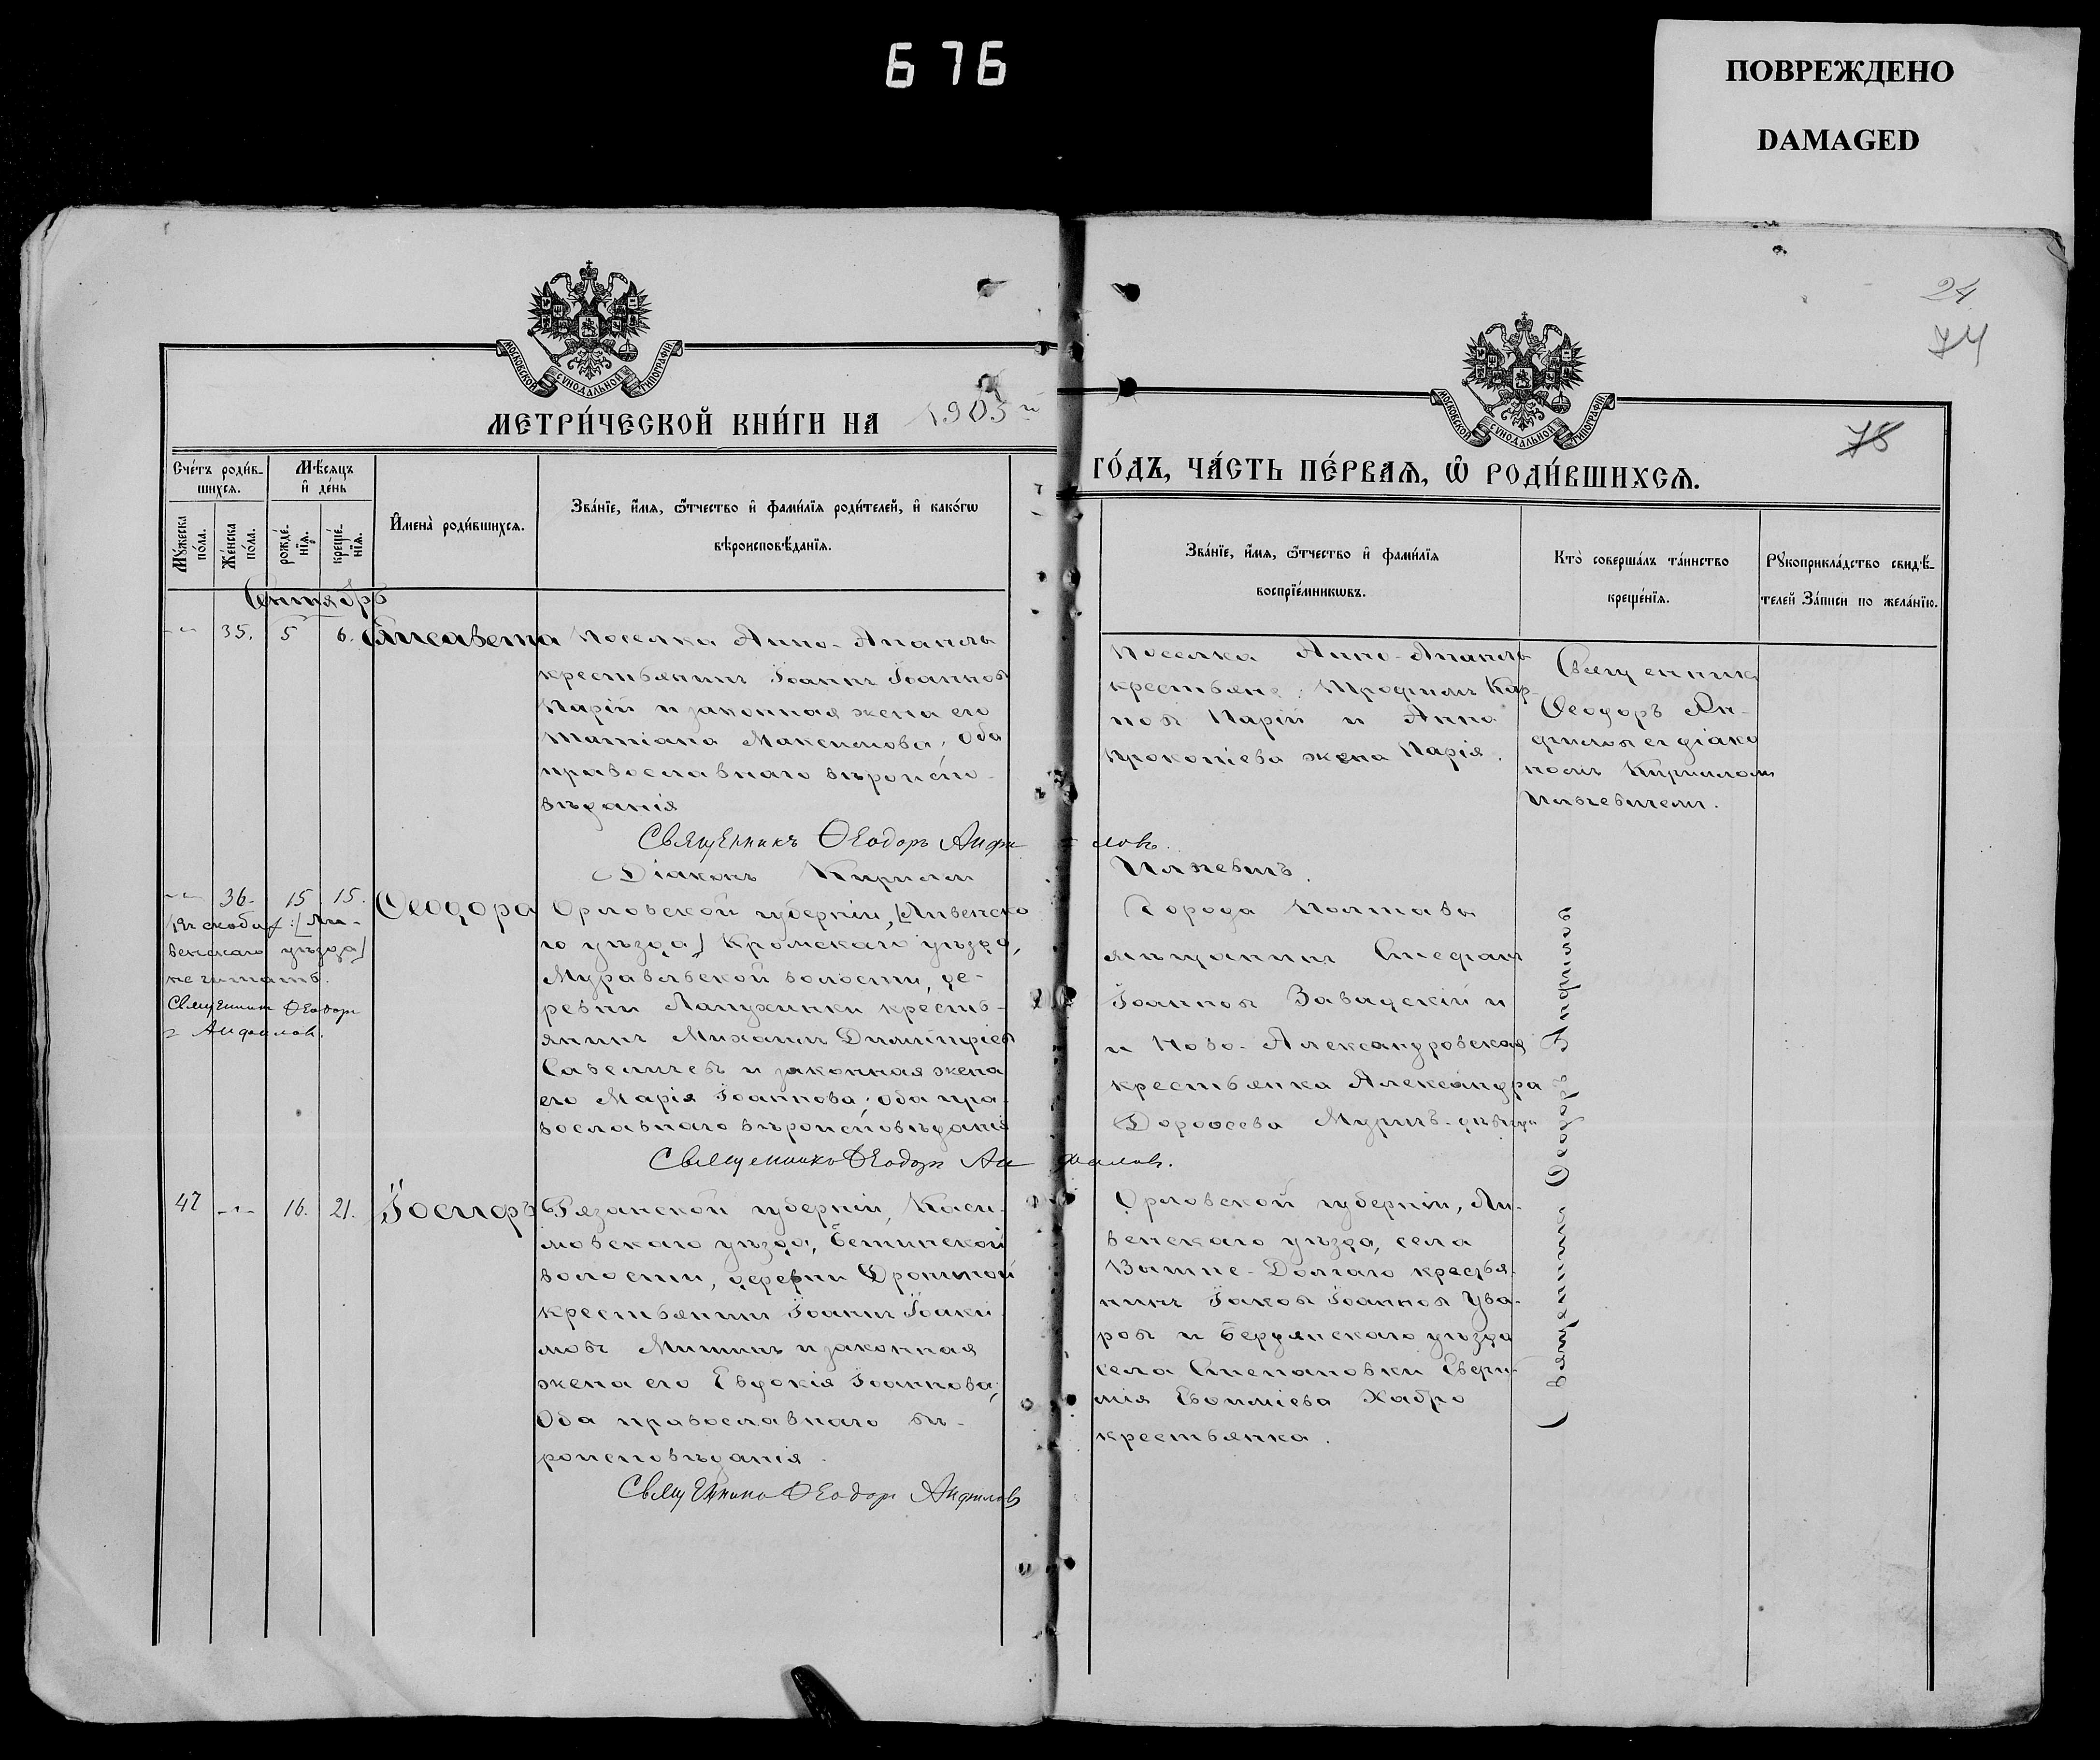 676
ПОВРЕЖДЕНО
DAMAGED
24
74
75
МОСКОВСКОЙ СѴНОДАЛЬНОЙ ТИПОГРАФІИ
МОСКОВСКОЙ СѴНОДАЛЬНОЙ ТИПОГРАФІИ
МЕТРИ́ЧЕСКОЙ КНИ́ГИ НА 1903й
ГО́ДЪ, ЧА́СТЬ ПЕ́РВАЯ, Ѿ РОДИ́ВШИХСѦ.
Сче́тъ роди́в-
шихся.
Мѣ́сяцъ
и҆ де́нь
Мꙋ́жеска по́ла.
Же́нска по́ла.
рожде́-нїя.
креще́-нїя.
И҆мена̀ роди́вшихся.
Зва́нїе, и҆́мя, ѻ҆́тчество и҆ фами́лїя роди́телей, и҆ како́гѡ
вѣроисповѣ́данїя.
Зва́нїе, и҆́мя, ѻ҆́тчество и҆ фами́лїя
воспрїе́мникѡвъ.
Кто̀ соверша́лъ та́инство
креще́нїя.
Рꙋкоприкла́дство свидѣ́-
телей За́писи по жела́нїю.
Сентябрь
35. 5 6. Елисавета
Поселка Анно-Опанлы
крестьянинъ Іоаннъ Іоанновъ
Парій и законная жена его
Татіана Максимова, оба
православнаго вѣроиспо-
вѣданія
Священникъ Ѳеодоръ Анфиловъ.
Діаконъ Кириллъ Илкевичъ.
Поселка Анно-Опанлы
крестьяне: Трофимъ Кар-
повъ Парій и Анна
Прокопіева жена Парія.
Священникъ
Ѳеодоръ Ан-
филовъ съ діако
номъ Кирилломъ
Илкевичемъ.
36. 15 15. Ѳеодора
въ скобахъ: /Ли-
венскаго уѣзда/
не читать.
Священникъ Ѳеодоръ
Анфиловъ.
Орловской губерніи, /Ливенска-
го уѣзда/ Кромскаго уѣзда,
Муравльской волости, де-
ревни Лапухинки кресть-
янинъ Михаилъ Димитріевъ
Савеличевъ и законная жена
его Марія Іоаннова, оба пра-
вославнаго вѣроисповѣданія
Священникъ Ѳеодоръ Анфиловъ.
Города Полтавы
мѣщанинъ Стефанъ
Іоанновъ Завадскій и
и Ново-Александровская
крестьянка Александра
Дороѳеева Муричъ-дѣвица
Священникъ Ѳеодоръ Анфиловъ
47 16. 21. Іосифъ
Рязанской губерніи, Каси-
мовскаго уѣзда, Бетинской
волости, деревни Фроминой
крестьянинъ Іоаннъ Іоаки-
мовъ Мишинъ и законная
жена его Евдокія Іоаннова,
оба православнаго вѣ-
роисповѣданія.
Священникъ Ѳеодоръ Анфиловъ
Орловской губерніи, Ли-
венскаго уѣзда, села
Вышне-Долгаго крестья-
нинъ Іаковъ Іоанновъ Ува-
ровъ и Бердянскаго уѣзда
села Степановки Евѳи-
мія Евѳиміева Хабро
крестьянка.